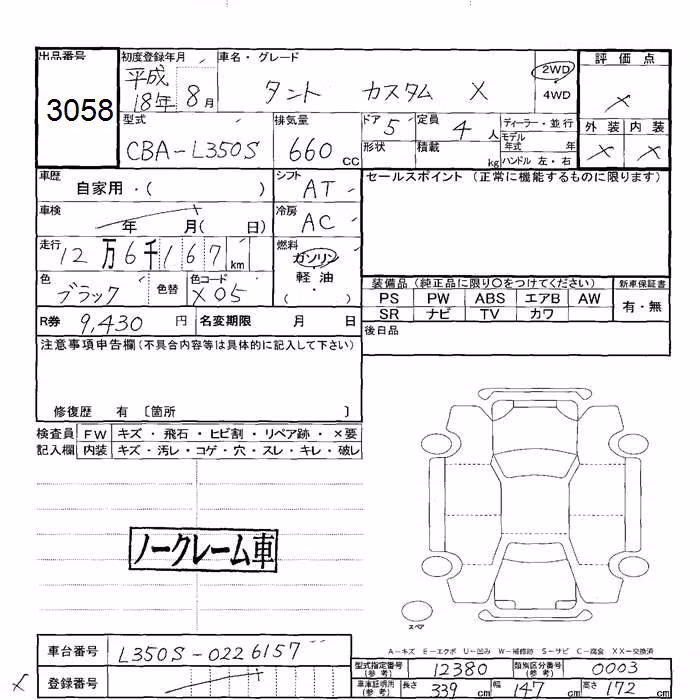 出品番号
3058
初度登録年月
平成
18年 8月
車名・グレード
タント カスタム X
2WD
4WD
評価点
×
外装 内装
× ×
型式
CBA-L350S
排気量
660 cc
ドア 5
定員 4人
形状
積載 kg
ディーラー・並行
モデル
年式 年
ハンドル 左・右
車歴
自家用・( )
シフト
AT
車検
年 月( 日)
冷房
AC
走行
12万6千167 km
燃料
ガソリン
軽油
( ・ )
色
ブラック
色替
色コード
X05
R券 9,430 円
名変期限 月 日
セールスポイント(正常に機能するものに限ります)
装備品(純正品に限り○をつけてください)
新車保証書
PS PW ABS エアB AW
SR ナビ TV カワ
有・無
後日品
注意事項申告欄(不具合内容等は具体的に記入して下さい)
修復歴 有 〔箇所 〕
検査員
記入欄
FW キズ・飛石・ヒビ割・リペア跡・×要
内装 キズ・汚レ・コゲ・穴・スレ・キレ・破レ
ノークレーム車
スペア
A-キズ E-エクボ U-凹み W-補修跡 S-サビ C-腐食 XX-交換済
車台番号 L350S-0226157
登録番号
×
型式指定番号
(参考)
12380
類別区分番号
(参考)
0003
車庫証明用
(参考)
長さ 339 cm 幅 147 cm 高さ 172 cm